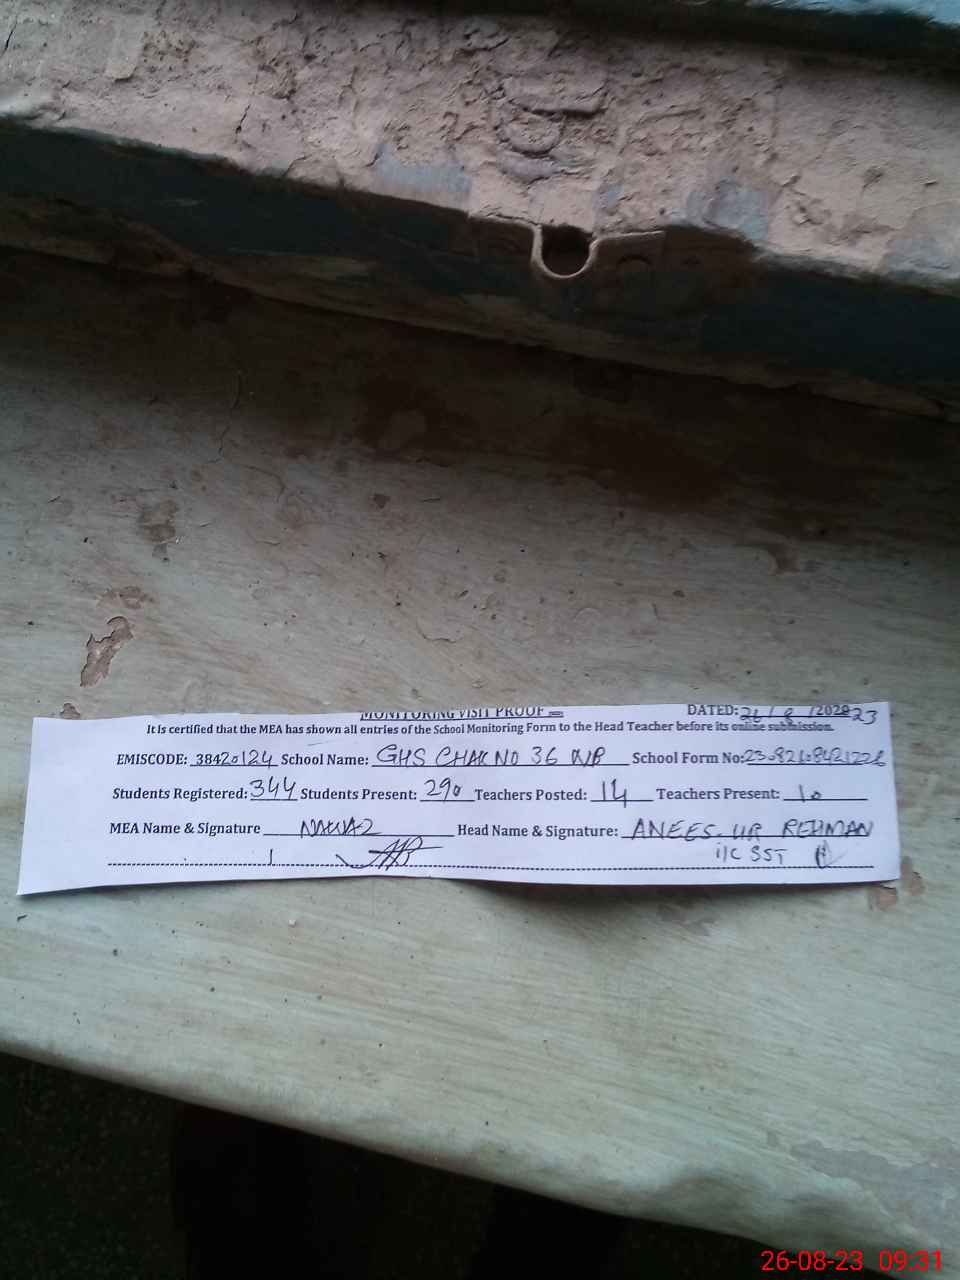 MONITORING VISIT PROOF
DATED: 26/8/2023
It is certified that the MEA has shown all entries of the School Monitoring Form to the Head Teacher before its online submission.
EMISCODE: 38420124 School Name: GHS CHAK NO 36 NB School Form No:
Students Registered: 344 Students Present: 290 Teachers Posted: 14 Teachers Present: 10
MEA Name & Signature NAWAZ Head Name & Signature: ANEES-UR REHMAN
i/c SST
26-08-23 09:31